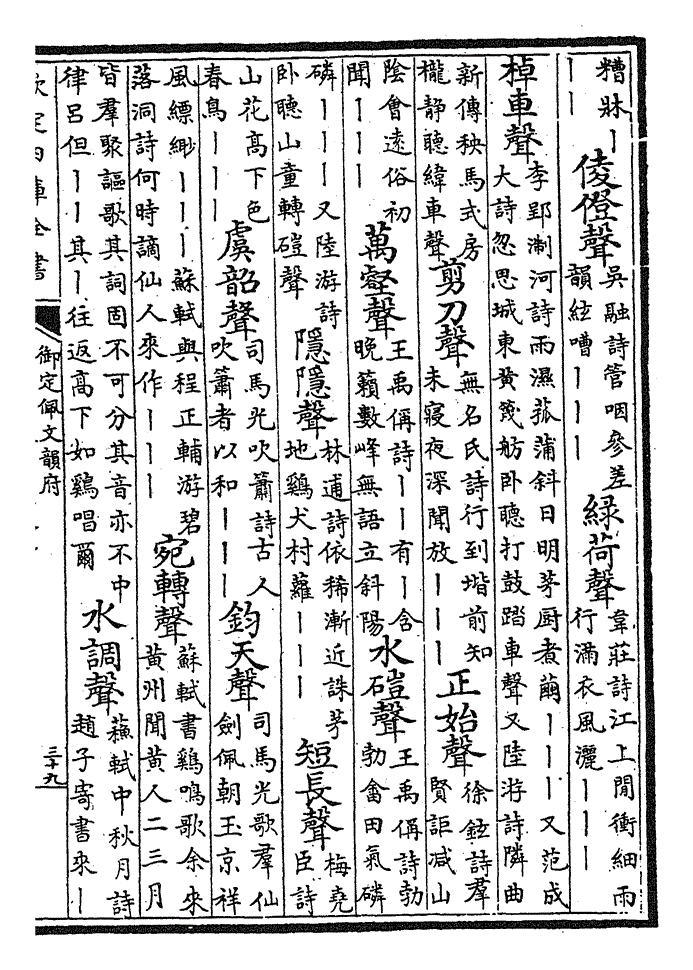 糟牀丨
丨丨
倰僜聲
吳融詩管咽參差
韻絃嘈丨丨丨
綠荷聲
韋莊詩江上閒衝細雨
行滿衣風灑丨丨丨
棹車聲
李郢淛河詩雨濕菰蒲斜日明茅厨煮繭丨丨丨又范成
大詩忽思城東黄篾舫卧聽打鼓踏車聲又陸游詩隣曲
新傳秧馬式房
櫳静聽緯車聲
剪刀聲
無名氏詩行到堦前知
未寢夜深聞放丨丨丨
正始聲
徐鉉詩羣
賢詎减山
陰會遠俗初
聞丨丨丨
萬壑聲
王禹偁詩丨丨有丨含
晚籟數峰無語立斜陽
水磑聲
王禹偁詩勃
勃畬田氣磷
磷丨丨丨又陸游詩
卧聽山童轉磑聲
隱隱聲
林逋詩依稀漸近誅茅
地鷄犬村蘿丨丨丨
短長聲
梅堯
臣詩
山花高下色
春鳥丨丨丨
虞韶聲
司馬光吹簫詩古人
吹簫者以和丨丨丨
鈞天聲
司馬光歌羣仙
劍佩朝玉京祥
風縹緲丨丨丨蘇軾與程正輔游碧
落洞詩何時謫仙人來作丨丨丨
宛轉聲
蘇軾書鷄鳴歌余來
黄州聞黄人二三月
皆羣聚謳歌其詞固不可分其音亦不中
律吕但丨丨其丨往返高下如鷄唱爾
水調聲
蘇軾中秋月詩
趙子寄書來丨
欽定四庫全書
御定佩文韻府
三十九